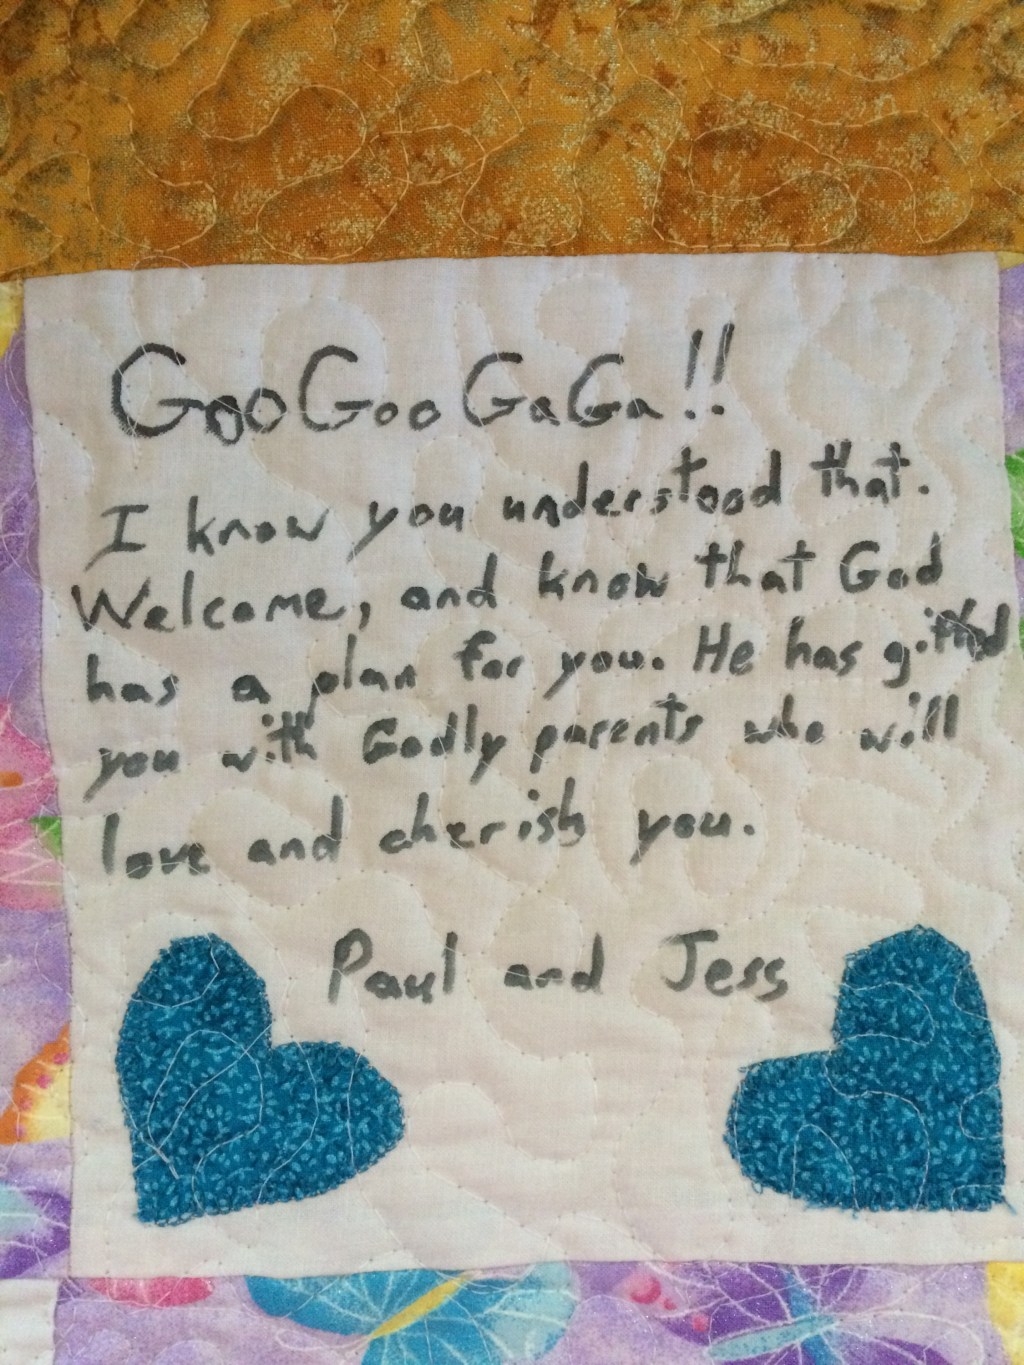 GooGoo GaGa!!
I know you understood that.
Welcome, and know that God
has a plan for you. He has gifted
you with Godly parents who will
love and cherish you.
Paul and Jess